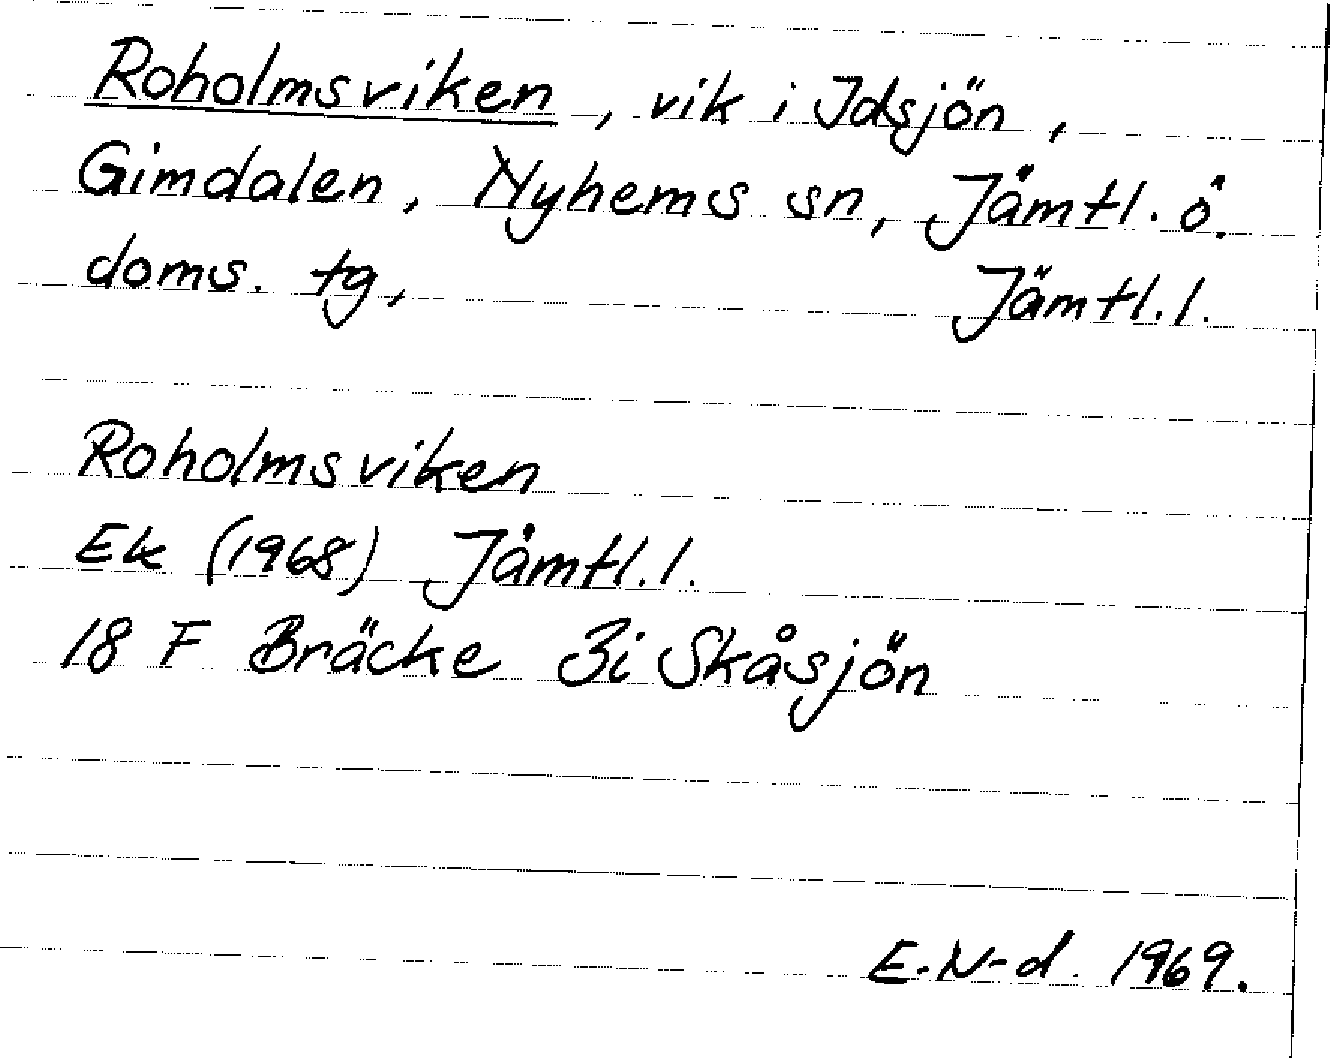 Roholmsviken, vik i Idsjön,
Gimdalen, Nyhems sn, Jämtl. ö.
doms. tg, Jämtl. l.
Roholmsviken
Ek (1968) Jämtl. l.
18 F Bräcke 3i Skåsjön
E. N-d. 1969.